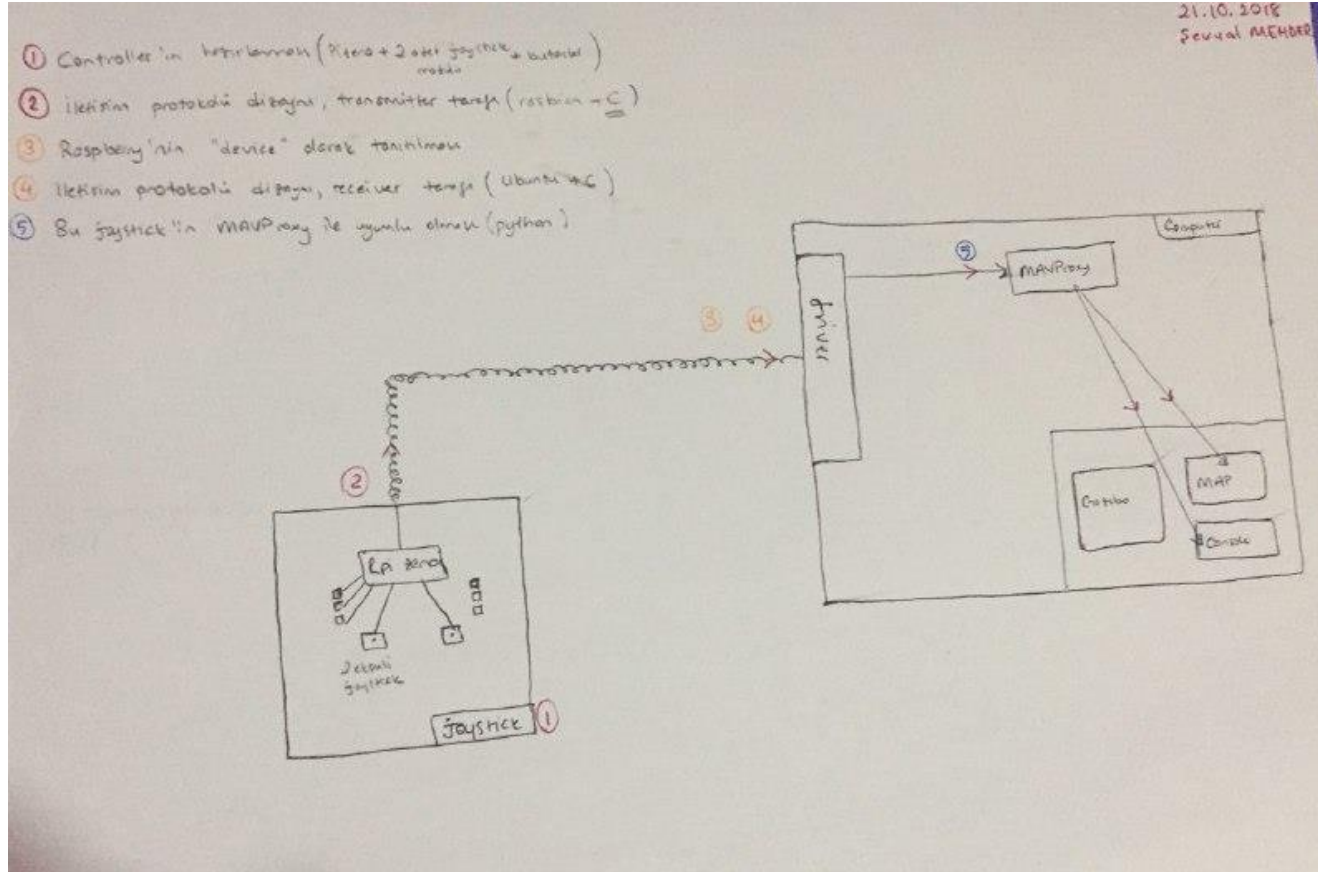 21.10.2018
Şevval MEHDER
① Controller'in hazırlanması (Pi zero + 2 adet joystick + butonlar)
modülü
② iletişim protokolü dizaynı, transmitter tarafı (rasbian → C)
③ Raspberry'nin "device" olarak tanıtılması
④ iletişim protokolü dizaynı, receiver tarafı (Ubuntu → C)
⑤ Bu joystick'in MAVProxy ile uyumlu olması (python)
Computer
⑤
MAVProxy
driver
③ ④
②
MAP
Gazibo
Console
Rpi zero
2 eksenli
joystick
joystick ①